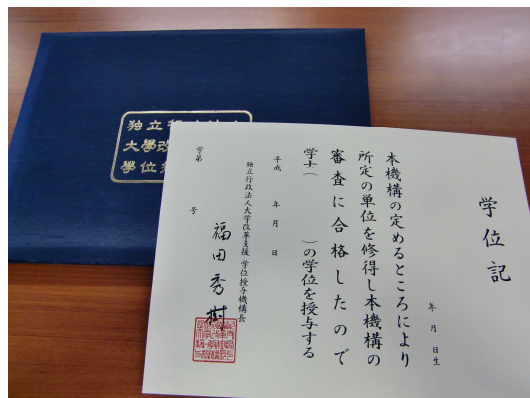 学位記
年 月 日生
本機構の定めるところにより
所定の単位を修得し本機構の
審査に合格したので
学士( )の学位を授与する
平成 年 月 日
独立行政法人大学改革支援・学位授与機構長
福田秀樹
学第 号
独立行
大學改
學位